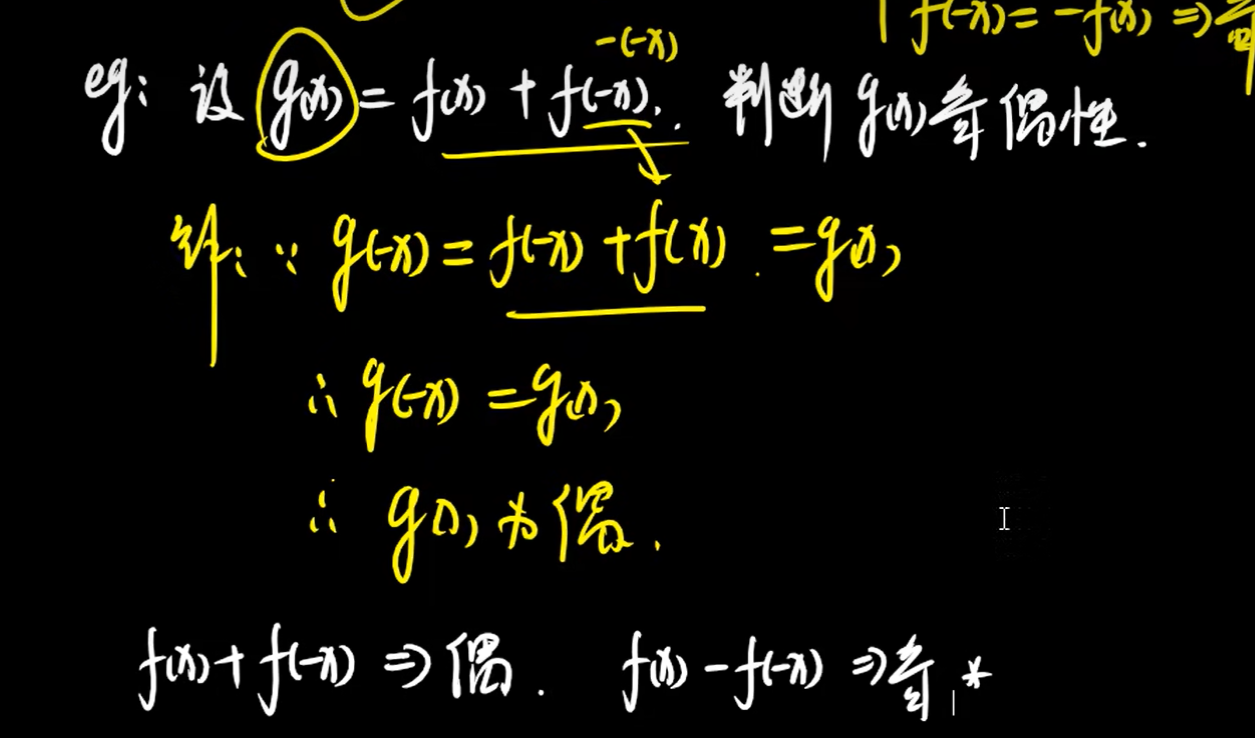 f(-x) = -f(x) ⇒ 奇
-(-x)
eg: 设 g(x) = f(x) + f(-x). 判断 g(x) 奇偶性.
解: ∵ g(-x) = f(-x) + f(x) = g(x)
∴ g(-x) = g(x)
∴ g(x) 为偶.
f(x) + f(-x) ⇒ 偶. f(x) - f(-x) ⇒ 奇 *